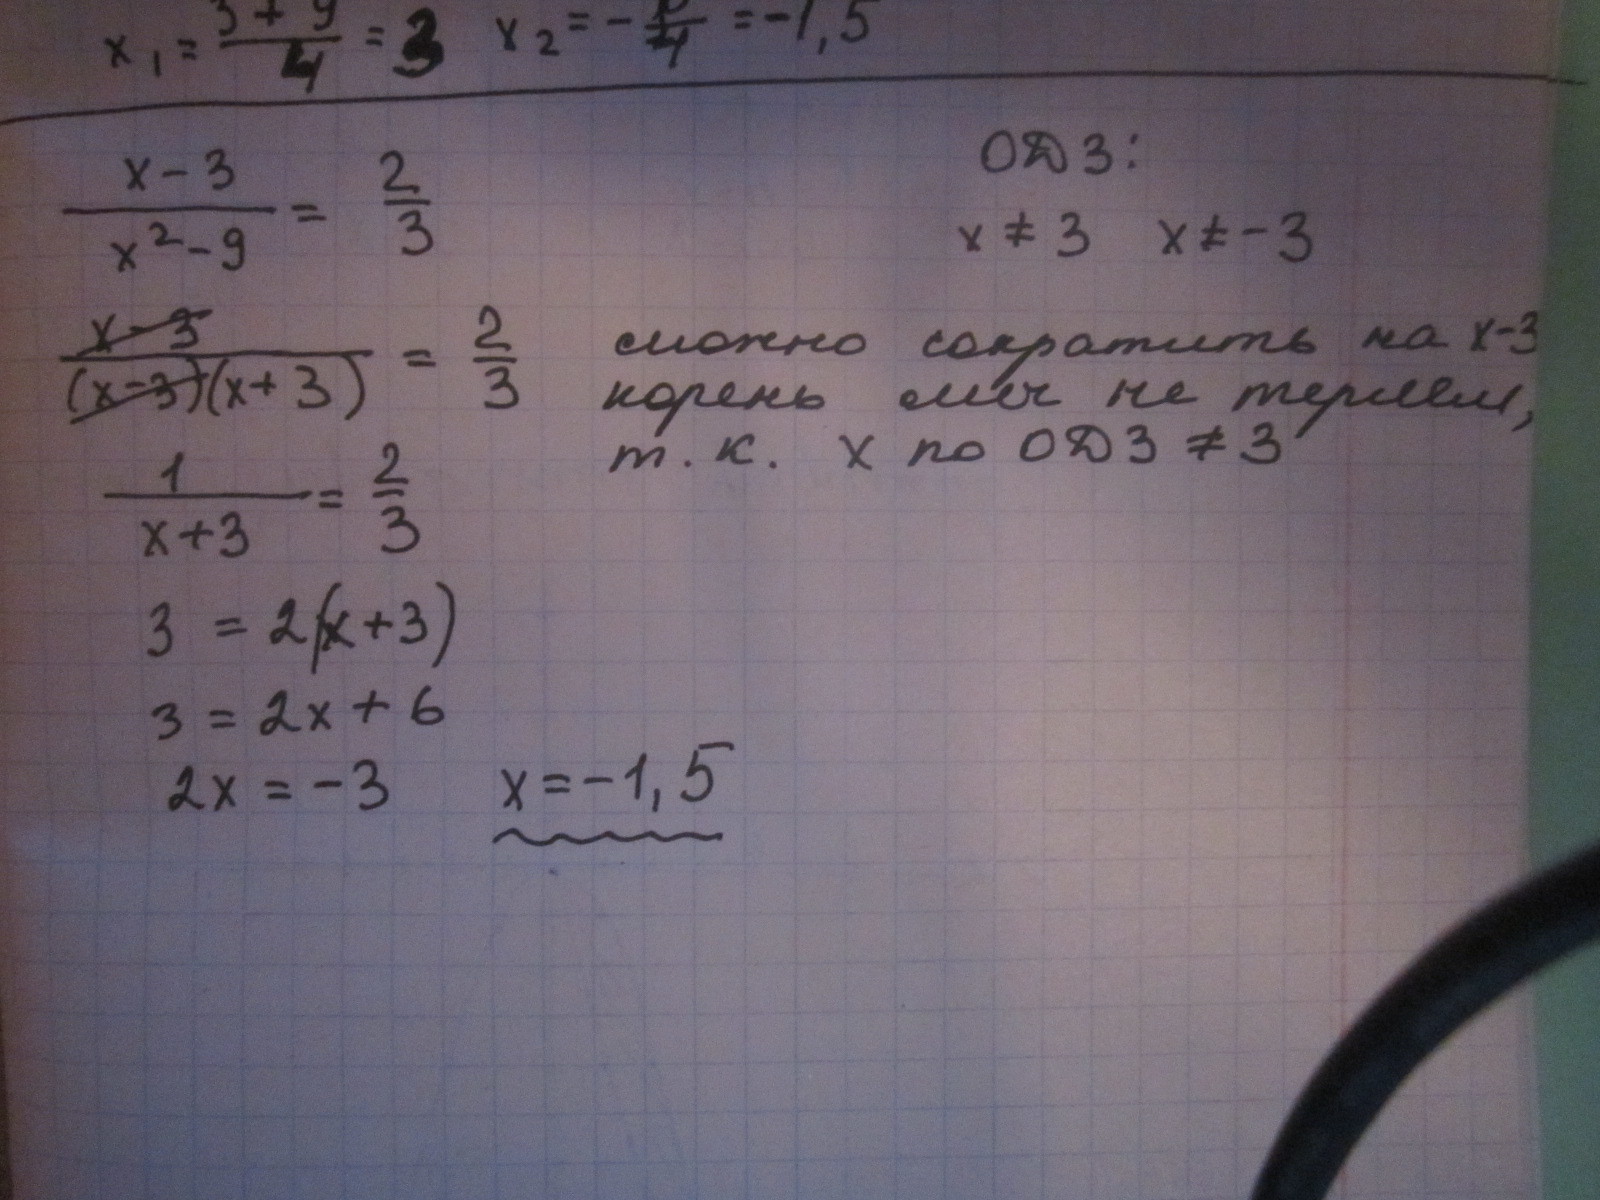 x₁ = (3+9)/4 = 3   x₂ = -6/4 = -1,5
(x-3)/(x²-9) = 2/3
ОДЗ:
x ≠ 3   x ≠ -3
(x-3)/((x-3)(x+3)) = 2/3
можно сократить на x-3
корень мы не теряем,
т.к. x по ОДЗ ≠ 3
1/(x+3) = 2/3
3 = 2(x+3)
3 = 2x + 6
2x = -3   x = -1,5